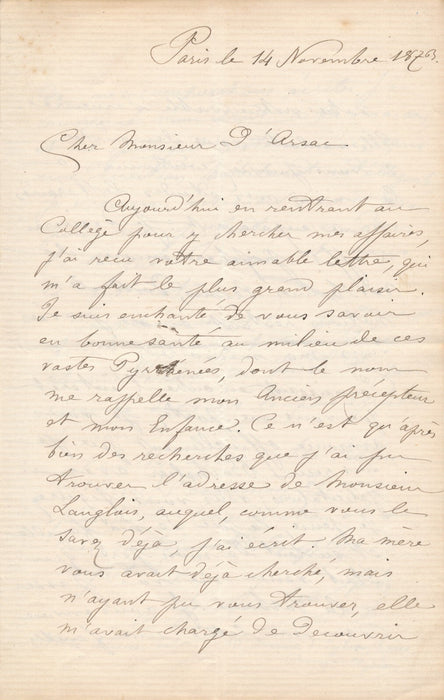 Paris le 14 Novembre
Cher Monsieur D'Arsac
Aujourd'hui en rentrant au
Collège pour y chercher mes affaires,
j'ai reçu vôtre aimable lettre, qui
m'a fait le plus grand plaisir.
Je suis enchanté de vous savoir
en bonne santé au milieu de ces
vastes Pyrénées, dont le nom
me rappelle mon Ancien précepteur
et mon Enfance. Ce n'est qu'après
bien des recherches que j'ai pu
trouver l'adresse de Monsieur
Langlois, auquel, comme vous le
savez déjà, j'ai écrit. Ma mère
vous avait déjà cherché, mais
n'ayant pu vous trouver, elle
m'avait chargé de Decouvrir